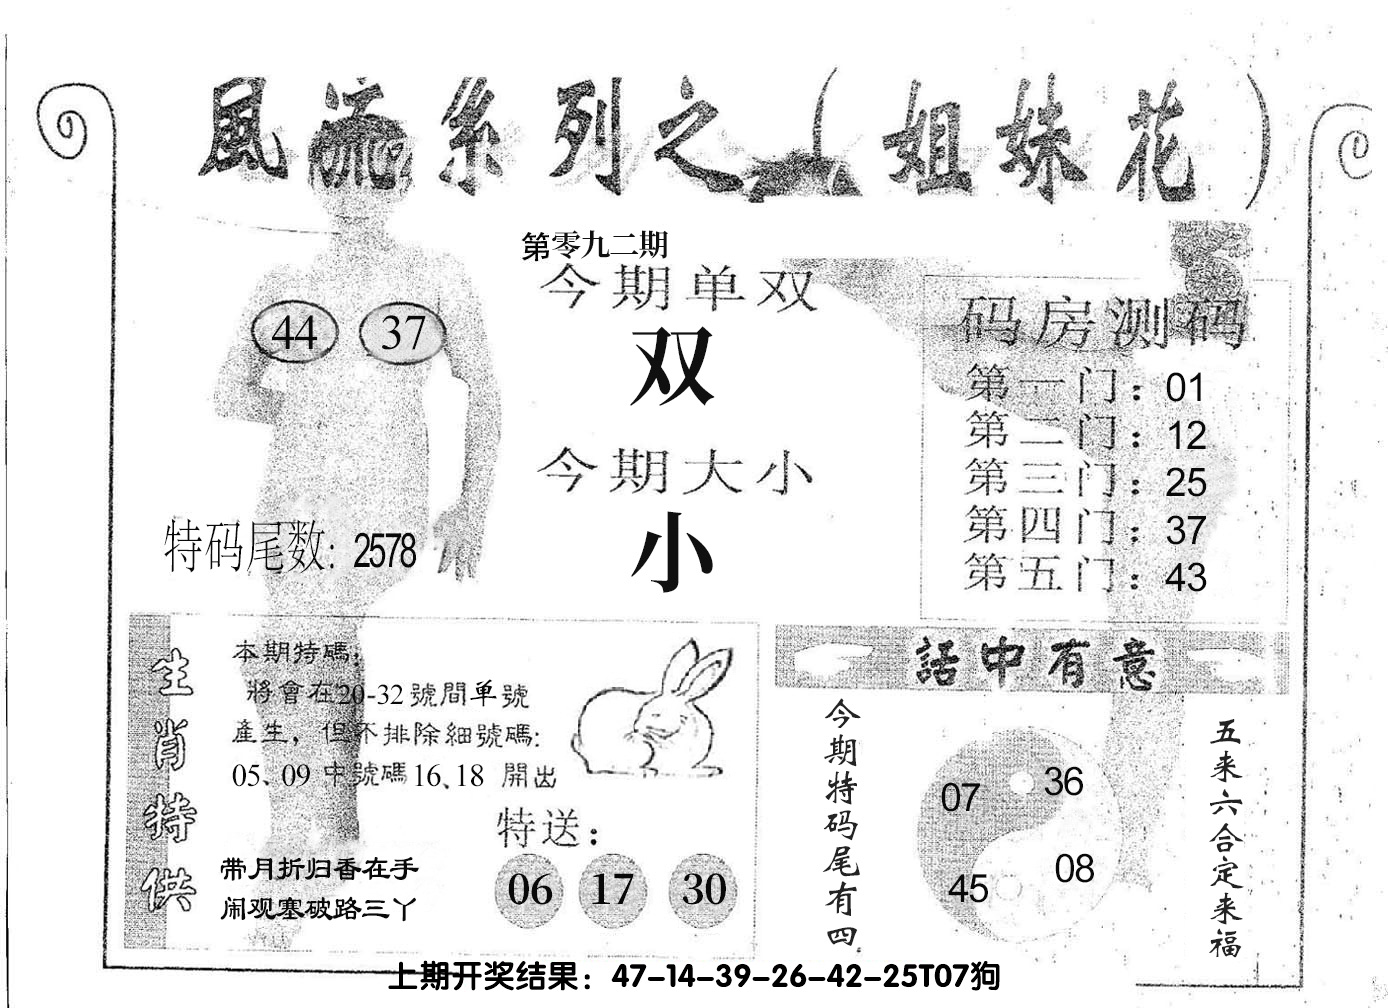 風流系列之（姐妹花）
第零九二期
今期单双
双
今期大小
小
44 37
特码尾数: 2578
码房测码
第一门：01
第二门：12
第三门：25
第四门：37
第五门：43
生肖特供
本期特碼：
將會在20-32號間单號
產生，但不排除細號碼:
05、09 中號碼16、18 開出
特送：
06 17 30
带月折归香在手
闹观塞破路三丫
話中有意
今期特码尾有四
07 36
45 08
五来六合定来福
上期开奖结果：47-14-39-26-42-25T07狗